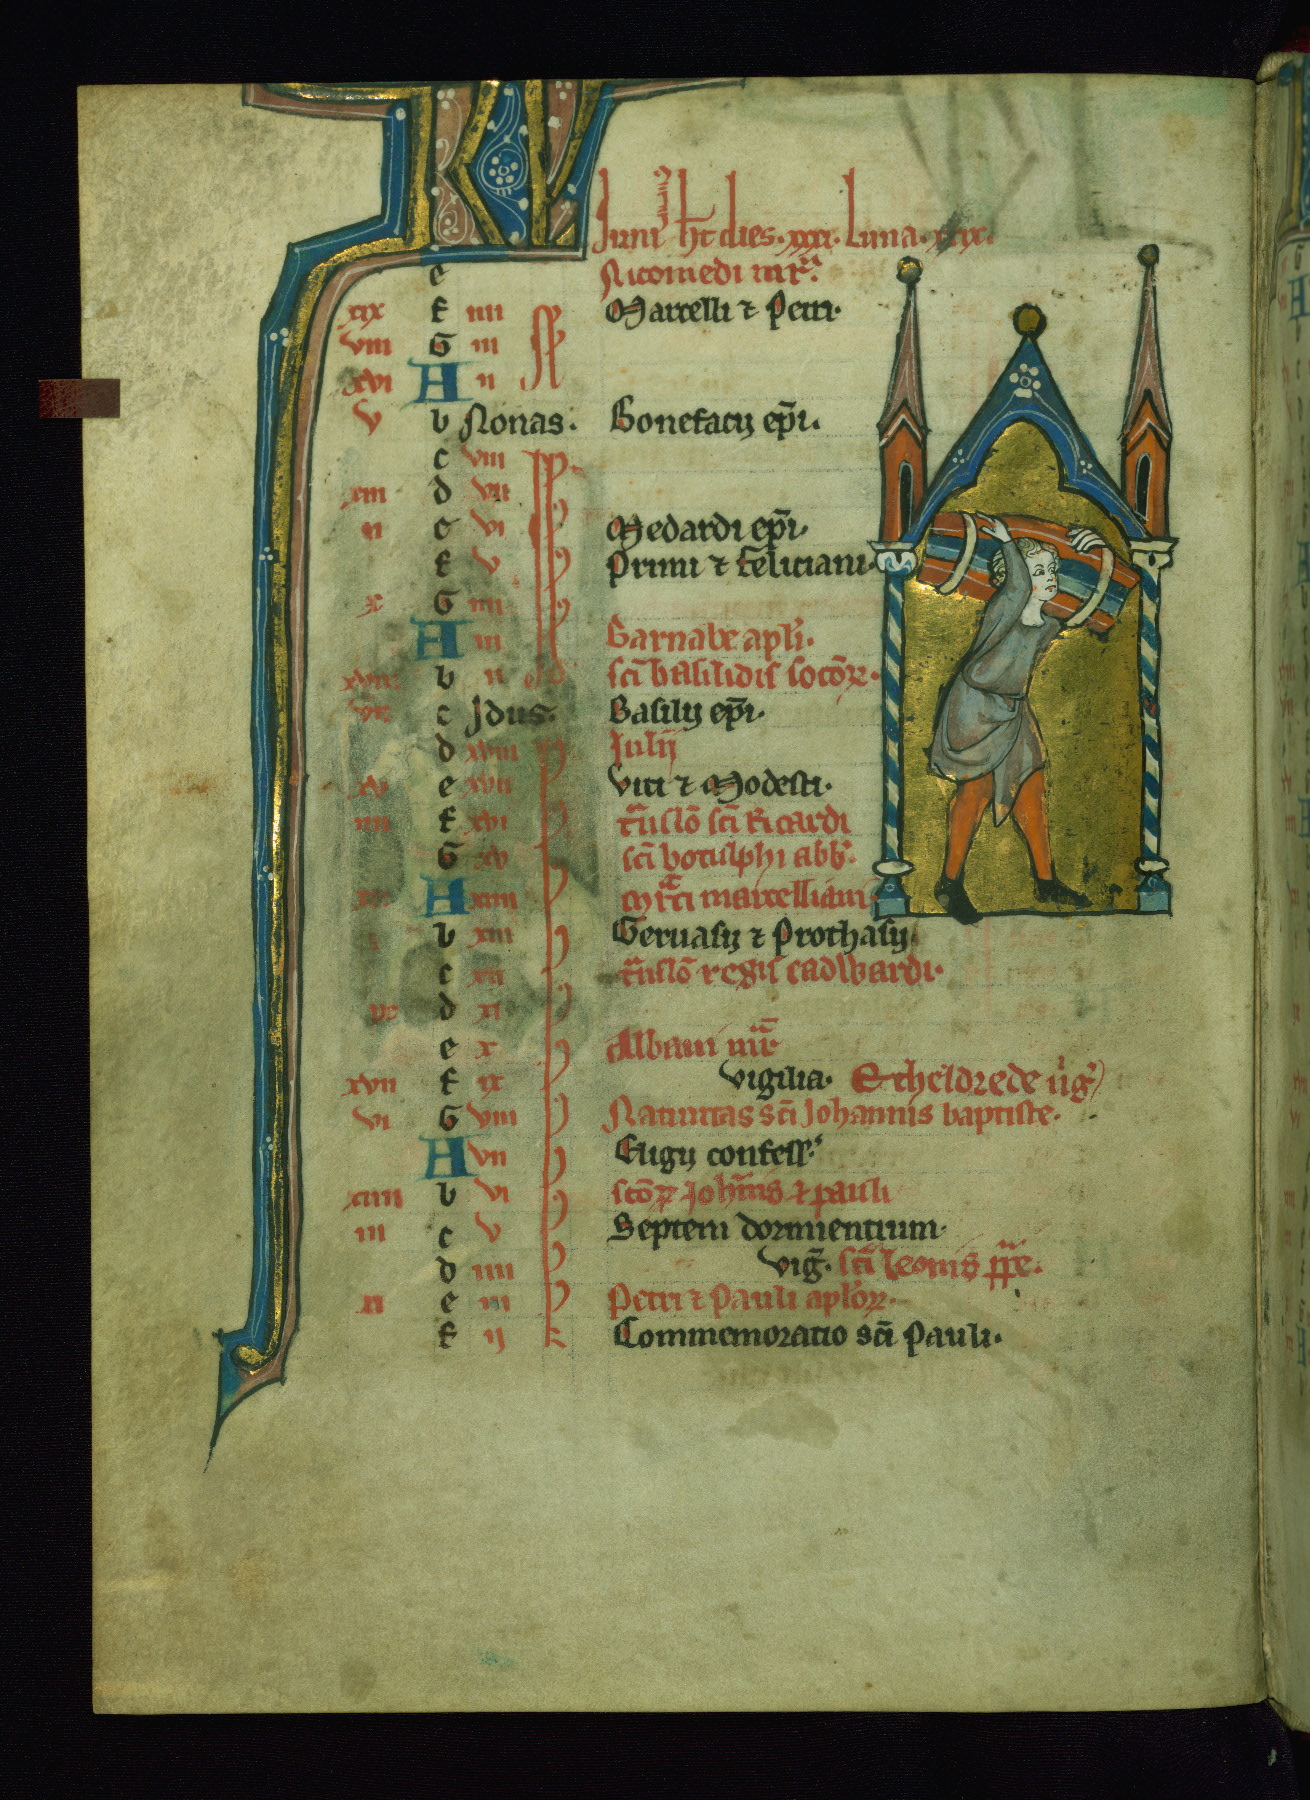 KL
Iunius ht dies. xxx. Luna. xxix.
e Nicomedi mr̄.
xix f iiii Marcelli ⁊ Petri.
viii G iii
xvi A ii
v b Nonas. Bonefacij ep̄i.
c viii
xiii d vii
ii e vi Medardi ep̄i.
f v Primi ⁊ feliciani.
x G iiii
A iii Barnabe apl̄i.
b ii sc̄i basilidis socōꝝ.
c Idus. Basilij ep̄i.
d xviii Iulij
xv e xvii Viti ⁊ Modesti.
iiii f xvi t̄nslō sc̄i Ricardi
G xv sc̄i botulphi abb̄.
A xiiii marcelliani
b xiii Geruasij ⁊ Prothasij.
c xii t̄nslō regis eadwardi.
d xi
e x Albani mr̄
xvii f ix Vigilia. Etheldrede ūḡ
vi G viii Natiuitas sc̄i Johannis baptiste.
A vii Eligij confess̄.
xiiii b vi sc̄oꝝ Joh̄nis ⁊ pauli
iii c v Septem dormientium.
d iiii viḡ. sc̄i leonis pp̄e.
e iii Petri ⁊ Pauli apl̄oꝝ.
f ij Commemoratio sc̄i Pauli.